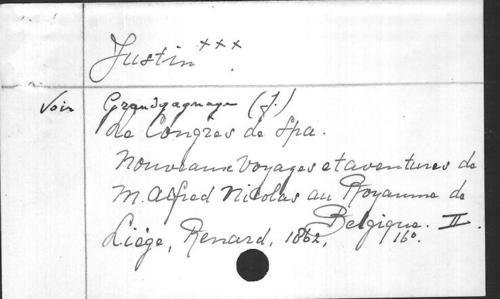 Justin ***.
Voir Grandgagnage (J.)
Le Congrès de Spa.
Nouveaux voyages et aventures de
M. Alfred Nicolas au Royaume de
Belgique. II.
Liége, Renard, 1862, 16°.